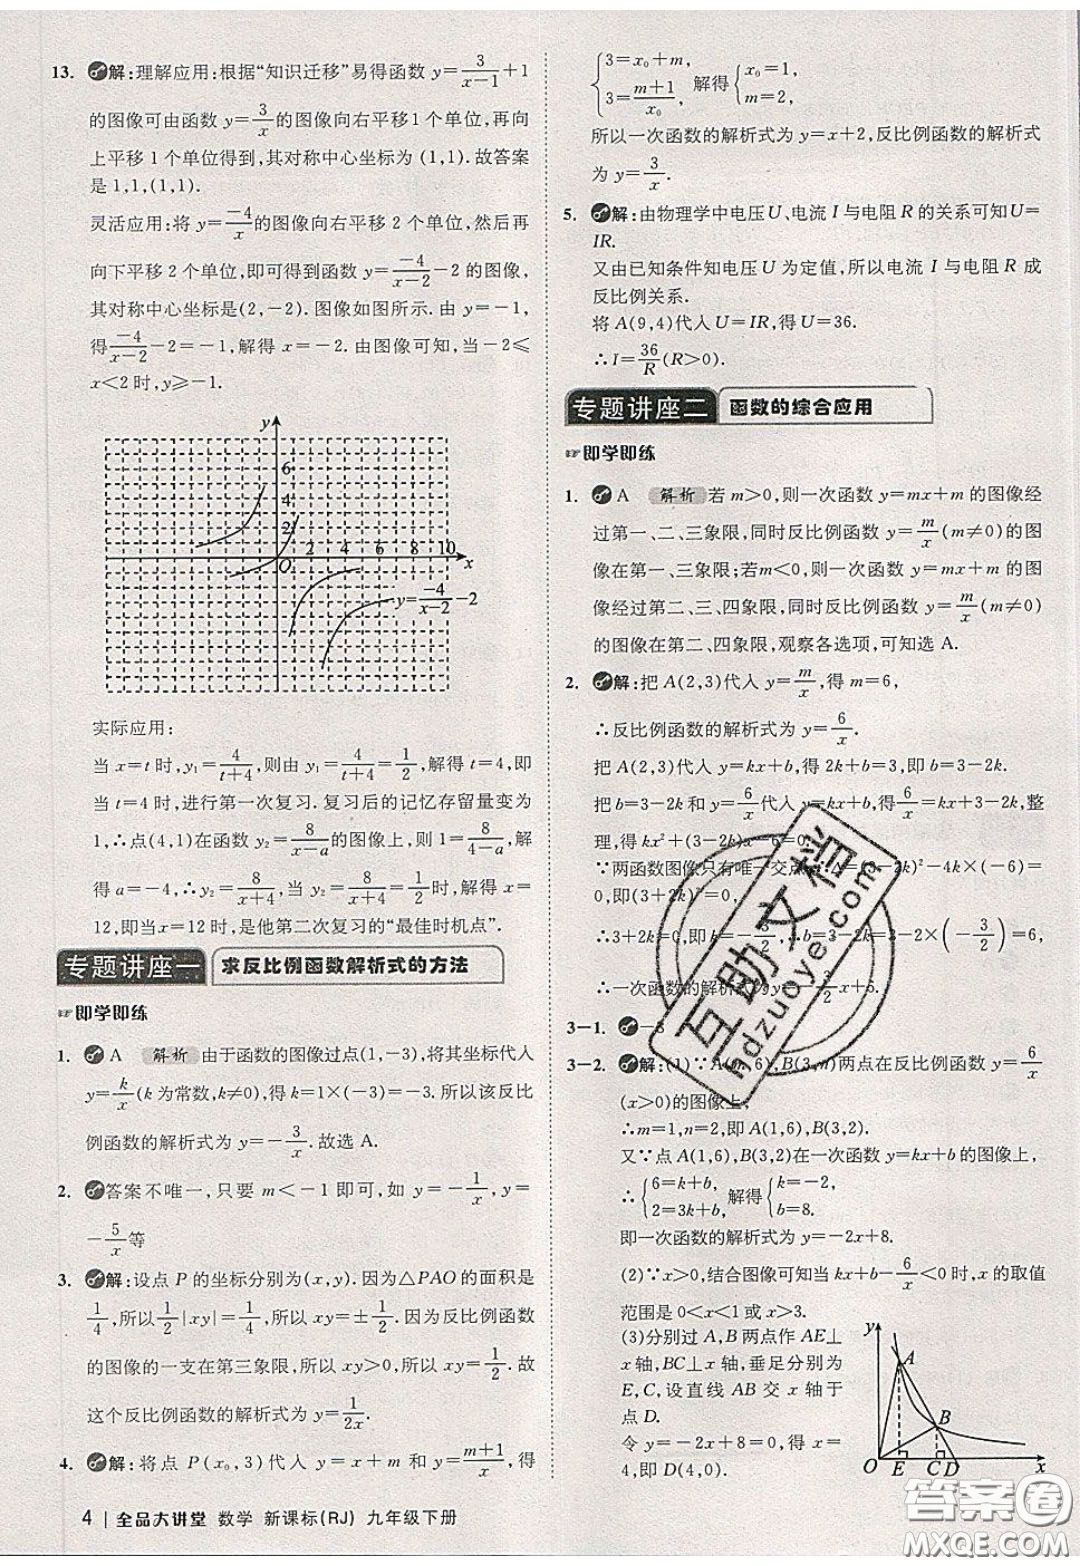 13. 解:理解应用:根据“知识迁移”易得函数 y=3/(x-1)+1
的图像可由函数 y=3/x的图像向右平移1个单位,再向
上平移1个单位得到,其对称中心坐标为 (1,1).故答案
是 1,1,(1,1).
灵活应用:将 y=-4/x的图像向右平移 2 个单位,然后再
向下平移 2 个单位,即可得到函数 y=-4/(x-2)-2 的图像,
其对称中心坐标是(2,-2).图像如图所示.由 y=-1,
得-4/(x-2)-2=-1,解得 x=-2.由图像可知,当-2≤
x<2 时,y≥-1.
y
6
4
2
O 2 4 6 8 10 x
y=-4/(x-2)-2
实际应用:
当 x=t 时,y₁=4/(t+4),则由 y₁=4/(t+4)=1/2,解得 t=4,即
当 t=4 时,进行第一次复习.复习后的记忆存留量变为
1,∴点(4,1)在函数 y₂=8/(x-a)的图像上,则 1=8/(4-a),解
得 a=-4,∴y₂=8/(x+4),当 y₂=8/(x+4)=1/2时,解得 x=
12,即当x=12 时,是他第二次复习的“最佳时机点”.
专题讲座一 求反比例函数解析式的方法
☞即学即练
1. A 解析 由于函数的图像过点(1,-3),将其坐标代入
y=k/x(k 为常数,k≠0),得 k=1×(-3)=-3.所以该反比
例函数的解析式为 y=-3/x.故选 A.
2. 答案不唯一,只要 m<-1 即可,如 y=-1/x,y=
-5/x等
3. 解:设点 P 的坐标分别为(x,y).因为△PAO的面积是
1/4,所以1/2|xy|=1/4,所以 xy=±1/2.因为反比例函数
的图像的一支在第三象限,所以 xy>0,所以 xy=1/2.故
这个反比例函数的解析式为 y=1/2x.
4. 解:将点 P(x₀,3)代入 y=x+m 和 y=(m+1)/x,得
4 | 全品大讲堂 数学 新课标(RJ) 九年级下册
{3=x₀+m, 3=(m+1)/x₀, 解得{x₀=1, m=2,
所以一次函数的解析式为 y=x+2,反比例函数的解析式
为 y=3/x.
5. 解:由物理学中电压U、电流 I 与电阻 R 的关系可知U=
IR.
又由已知条件知电压 U 为定值,所以电流 I 与电阻 R 成
反比例关系.
将 A(9,4)代入 U=IR,得 U=36.
∴I=36/R(R>0).
专题讲座二 函数的综合应用
☞即学即练
1. A 解析 若 m>0,则一次函数 y=mx+m 的图像经
过第一、二、三象限,同时反比例函数 y=m/x(m≠0)的图
像在第一、三象限;若m<0,则一次函数 y=mx+m 的图
像经过第二、三、四象限,同时反比例函数 y=m/x(m≠0)
的图像在第二、四象限,观察各选项,可知选 A.
2. 解:把 A(2,3)代入 y=m/x,得 m=6,
∴反比例函数的解析式为 y=6/x.
把 A(2,3)代入 y=kx+b,得 2k+b=3,即 b=3-2k.
把 b=3-2k 和 y=6/x代入 y=kx+b,得6/x=kx+3-2k,整
理,得 kx²+(3-2k)x-6=0.
∵两函数图像只有唯一交点,∴Δ=(3-2k)²-4k×(-6)=
0,即(3+2k)²=0,
∴3+2k=0,k=-3/2,b=3-2k=3-2×(-3/2)=6,
∴一次函数的解析式为 y=-3/2x+6.
3-1.
3-2. 解:(1)∵A(m,6),B(3,n)两点在反比例函数 y=6/x
(x>0)的图像上,
∴m=1,n=2,即 A(1,6),B(3,2).
又∵点 A(1,6),B(3,2)在一次函数 y=kx+b 的图像上,
∴{6=k+b, 2=3k+b, 解得{k=-2, b=8.
即一次函数的解析式为 y=-2x+8.
(2)∵x>0,结合图像可知当 kx+b-6/x<0 时,x 的取值
范围是 0<x<1 或 x>3.
(3)分别过 A,B 两点作 AE⊥
x 轴,BC⊥x 轴,垂足分别为
E,C,设直线 AB 交 x 轴于
点 D.
令 y=-2x+8=0,得 x=
4,即 D(4,0).
y
A
B
O E C D x
互助文档
hdzuoye.com
答案圈
MXQE.COM